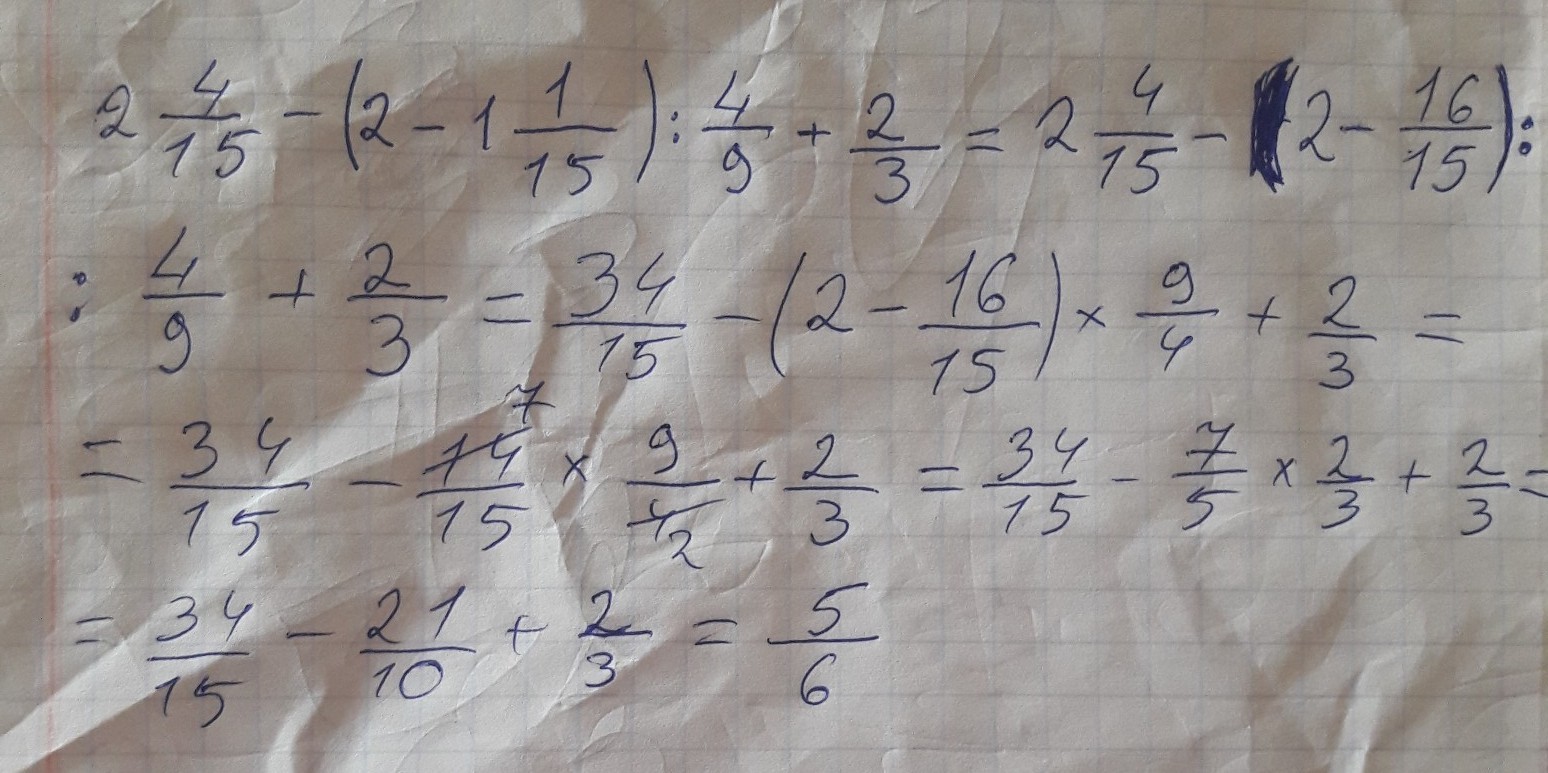 2 4/15 - (2 - 1 1/15) : 4/9 + 2/3 = 2 4/15 - (2 - 16/15) :
: 4/9 + 2/3 = 34/15 - (2 - 16/15) × 9/4 + 2/3 =
= 34/15 - 14/15 7 × 9/4 2 + 2/3 = 34/15 - 7/5 × 2/3 + 2/3 =
= 34/15 - 21/10 + 2/3 = 5/6